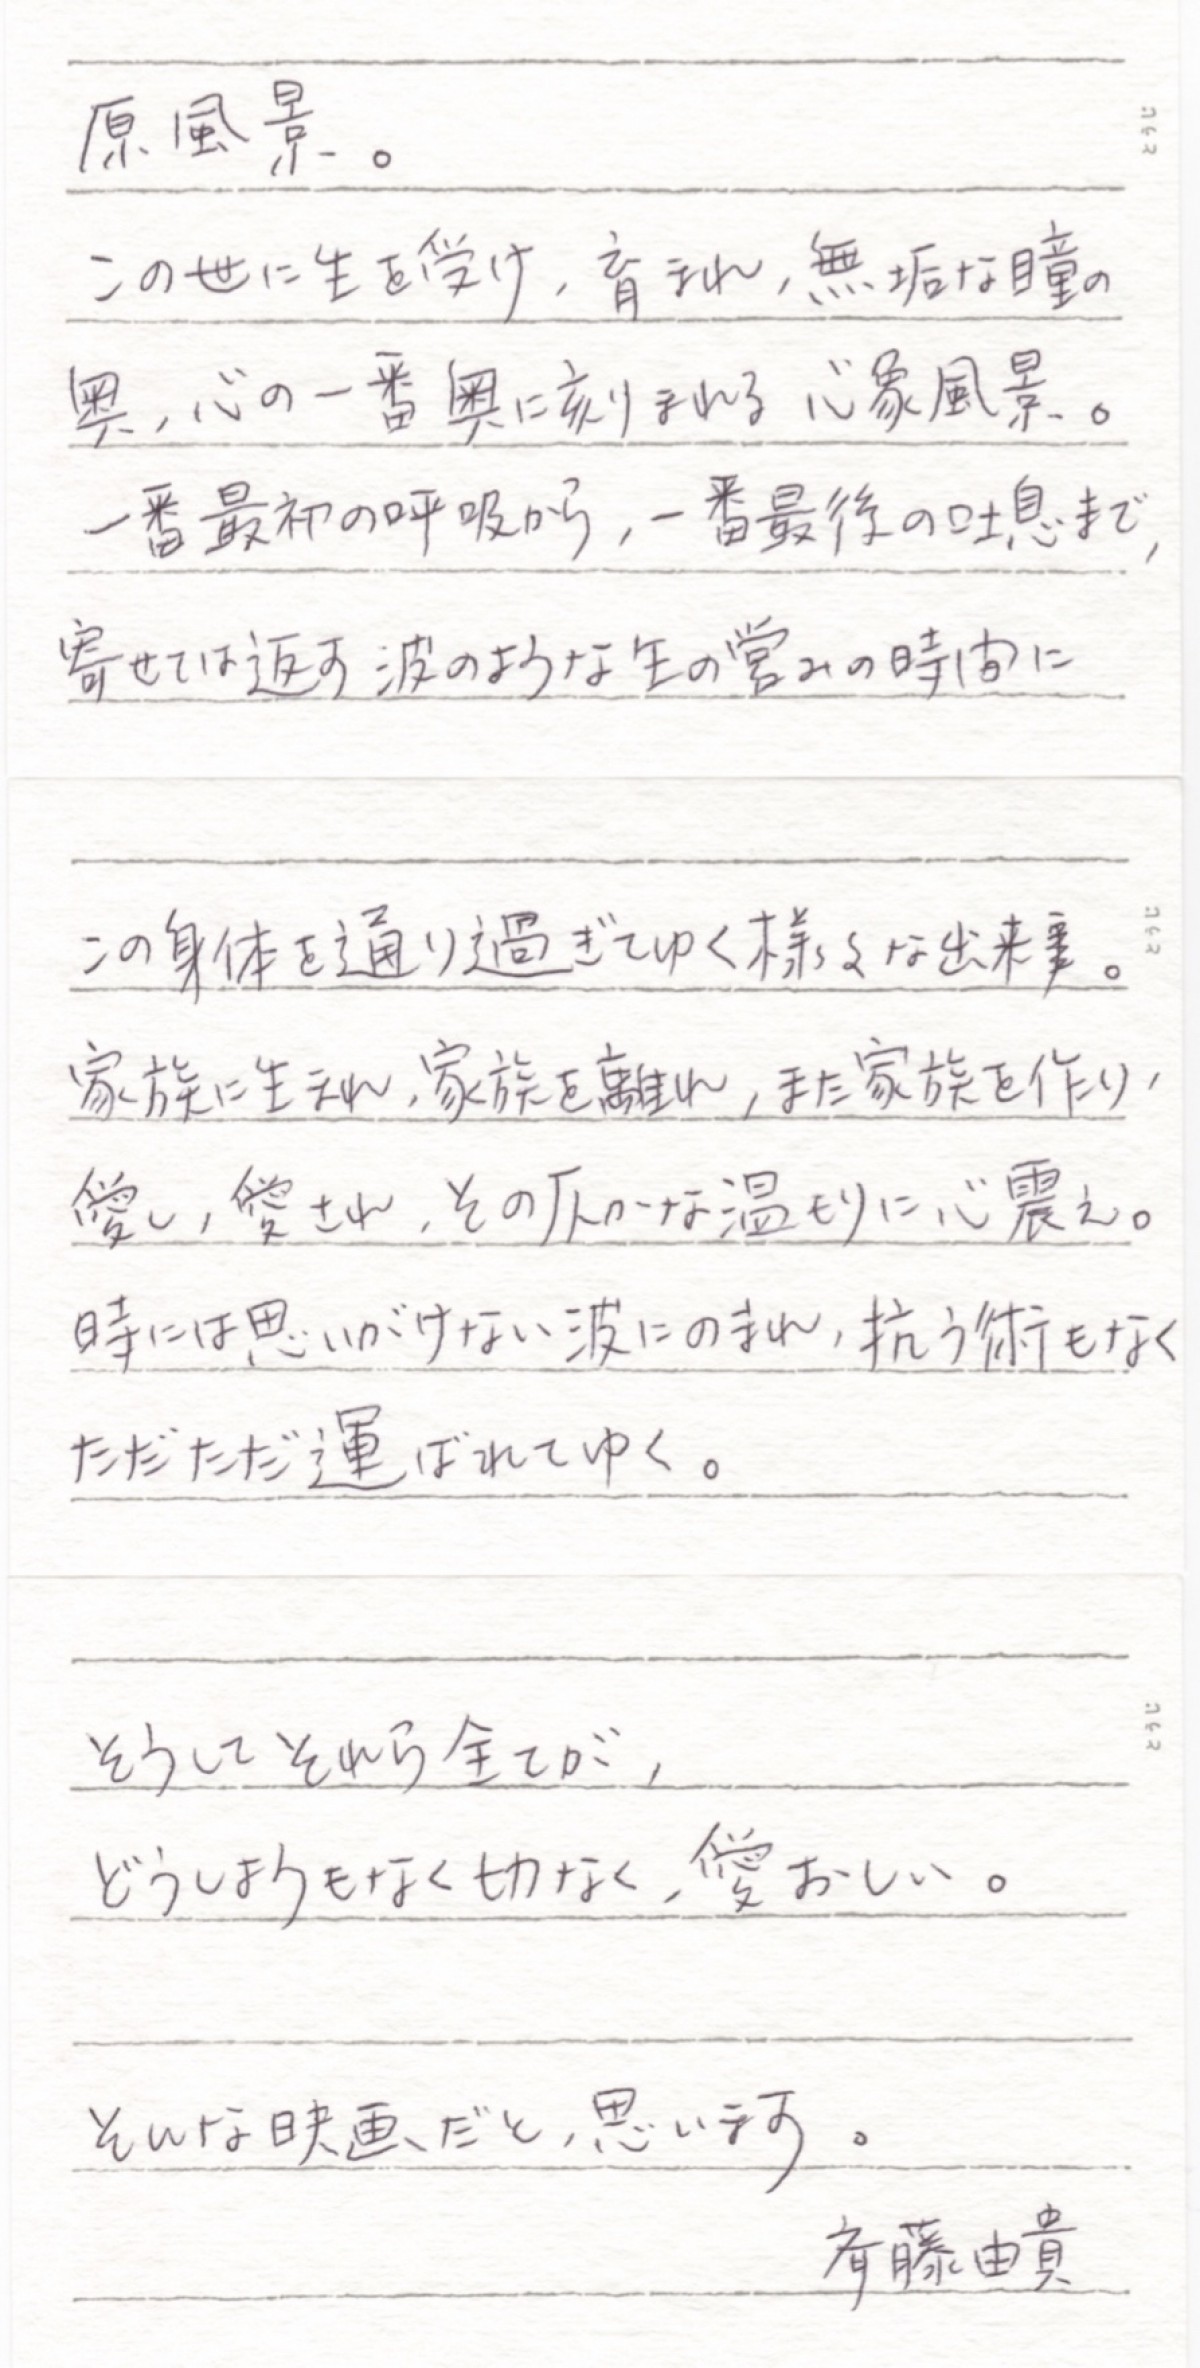 原風景。
この世に生を受け、育まれ、無垢な瞳の
奥、心の一番奥に刻まれる心象風景。
一番最初の呼吸から、一番最後の吐息まで、
寄せては返す波のような生の営みの時間に
この身体を通り過ぎてゆく様々な出来事。
家族に生まれ、家族を離れ、また家族を作り、
愛し、愛され、その仄かな温もりに心震え。
時には思いがけない波にのまれ、抗う術もなく
ただただ運ばれてゆく。
そうしてそれら全てが、
どうしようもなく切なく、愛おしい。
そんな映画だと、思います。
斉藤由貴